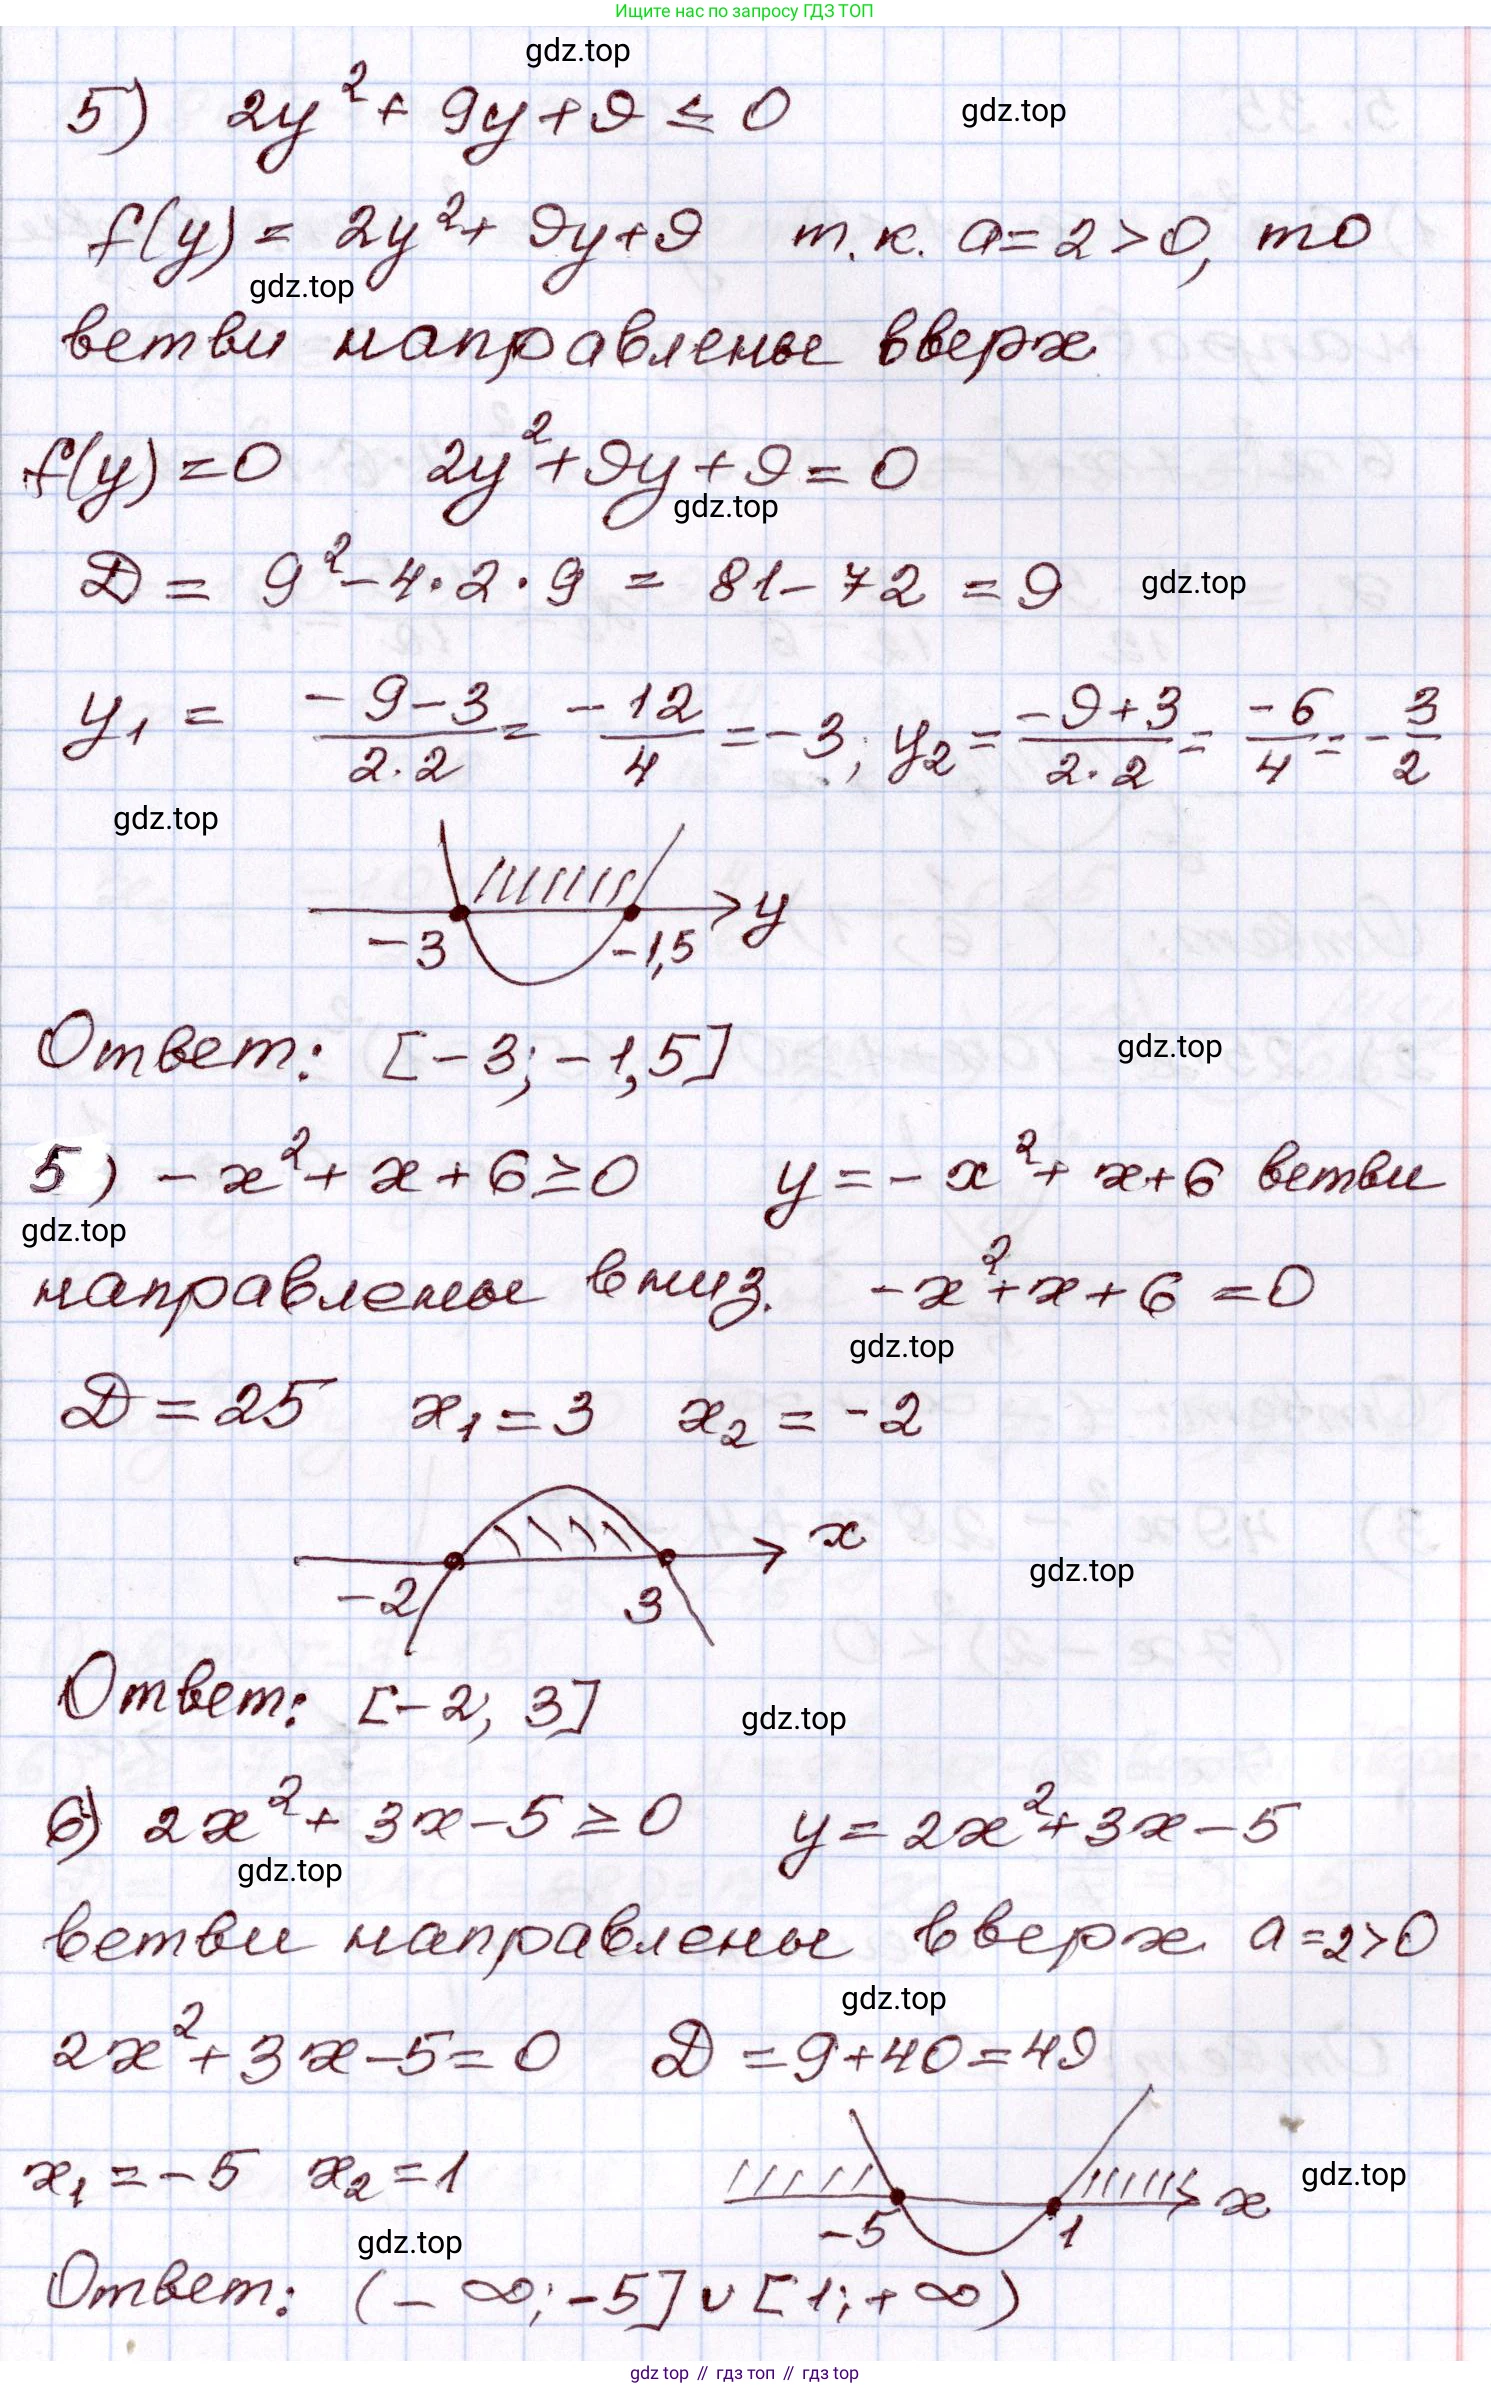 Ищите нас по запросу ГДЗ ТОП
gdz.top
5) 2y² + 9y + 9 ≤ 0
gdz.top
f(y) = 2y² + 9y + 9 т.к. a = 2 > 0, то
gdz.top
ветви направлены вверх
f(y) = 0 2y² + 9y + 9 = 0
gdz.top
D = 9² - 4 · 2 · 9 = 81 - 72 = 9
gdz.top
y₁ = (-9-3)/(2·2) = -12/4 = -3; y₂ = (-9+3)/(2·2) = -6/4 = -3/2
gdz.top
y
-3 -1,5
Ответ: [-3; -1,5]
gdz.top
5) -x² + x + 6 ≥ 0 y = -x² + x + 6 ветви
gdz.top
направлены вниз. -x² + x + 6 = 0
gdz.top
D = 25 x₁ = 3 x₂ = -2
x
-2 3
gdz.top
Ответ: [-2; 3]
gdz.top
6) 2x² + 3x - 5 ≥ 0 y = 2x² + 3x - 5
gdz.top
ветви направлены вверх a = 2 > 0
gdz.top
2x² + 3x - 5 = 0 D = 9 + 40 = 49
x₁ = -5 x₂ = 1
gdz.top
x
-5 1
gdz.top
Ответ: (-∞; -5] ∪ [1; +∞)
gdz top // гдз топ // gdz top